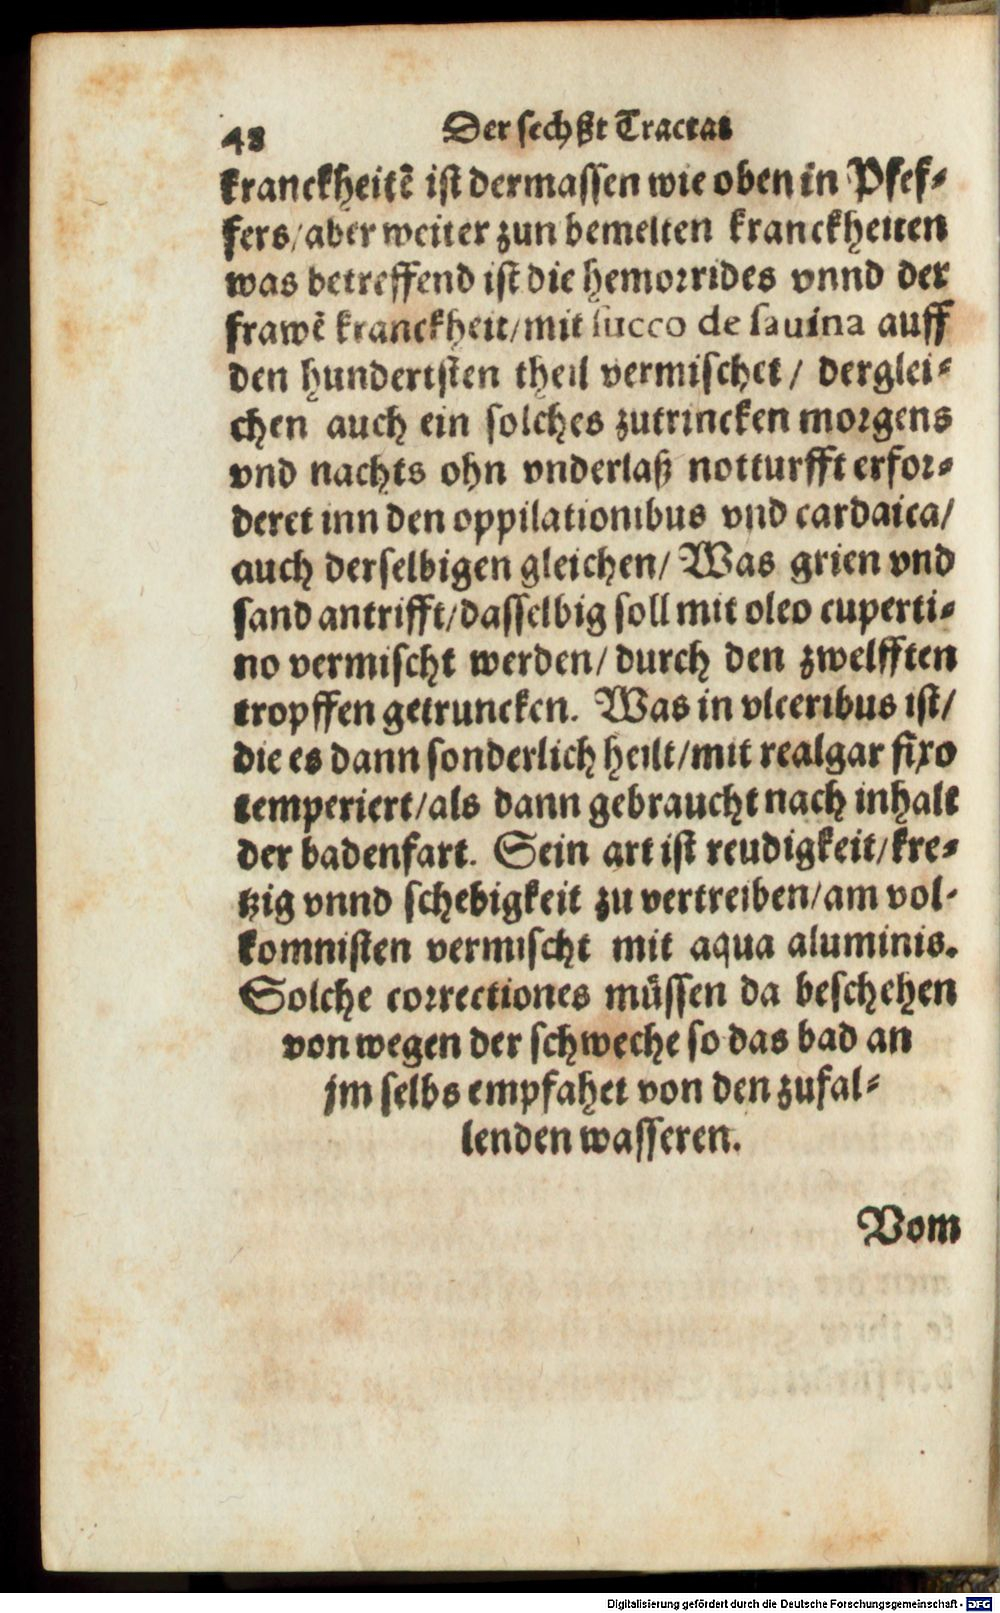 48 Der sechßt Tractat
kranckheitẽ ist dermassen wie oben in Pfef-
fers/aber weiter zun bemelten kranckheiten
was betreffend ist die hemorrides vnnd der
frawẽ kranckheit/mit succo de sauina auff
den hundertsten theil vermischet/ derglei-
chen auch ein solches zutrincken morgens
vnd nachts ohn vnderlaß notturfft erfor-
deret inn den oppilationibus vnd cardaica/
auch derselbigen gleichen/ Was grien vnd
sand antrifft/dasselbig soll mit oleo cuperti-
no vermischt werden/ durch den zwelfften
tropffen getruncken. Was in vlceribus ist/
die es dann sonderlich heilt/mit realgar fixo
temperiert/als dann gebraucht nach inhalt
der badenfart. Sein art ist reudigkeit/kre-
tzig vnnd schebigkeit zu vertreiben/am vol-
komnisten vermischt mit aqua aluminis.
Solche correctiones müssen da beschehen
von wegen der schweche so das bad an
jm selbs empfahet von den zufal-
lenden wasseren.
Vom
Digitalisierung gefördert durch die Deutsche Forschungsgemeinschaft - DFG